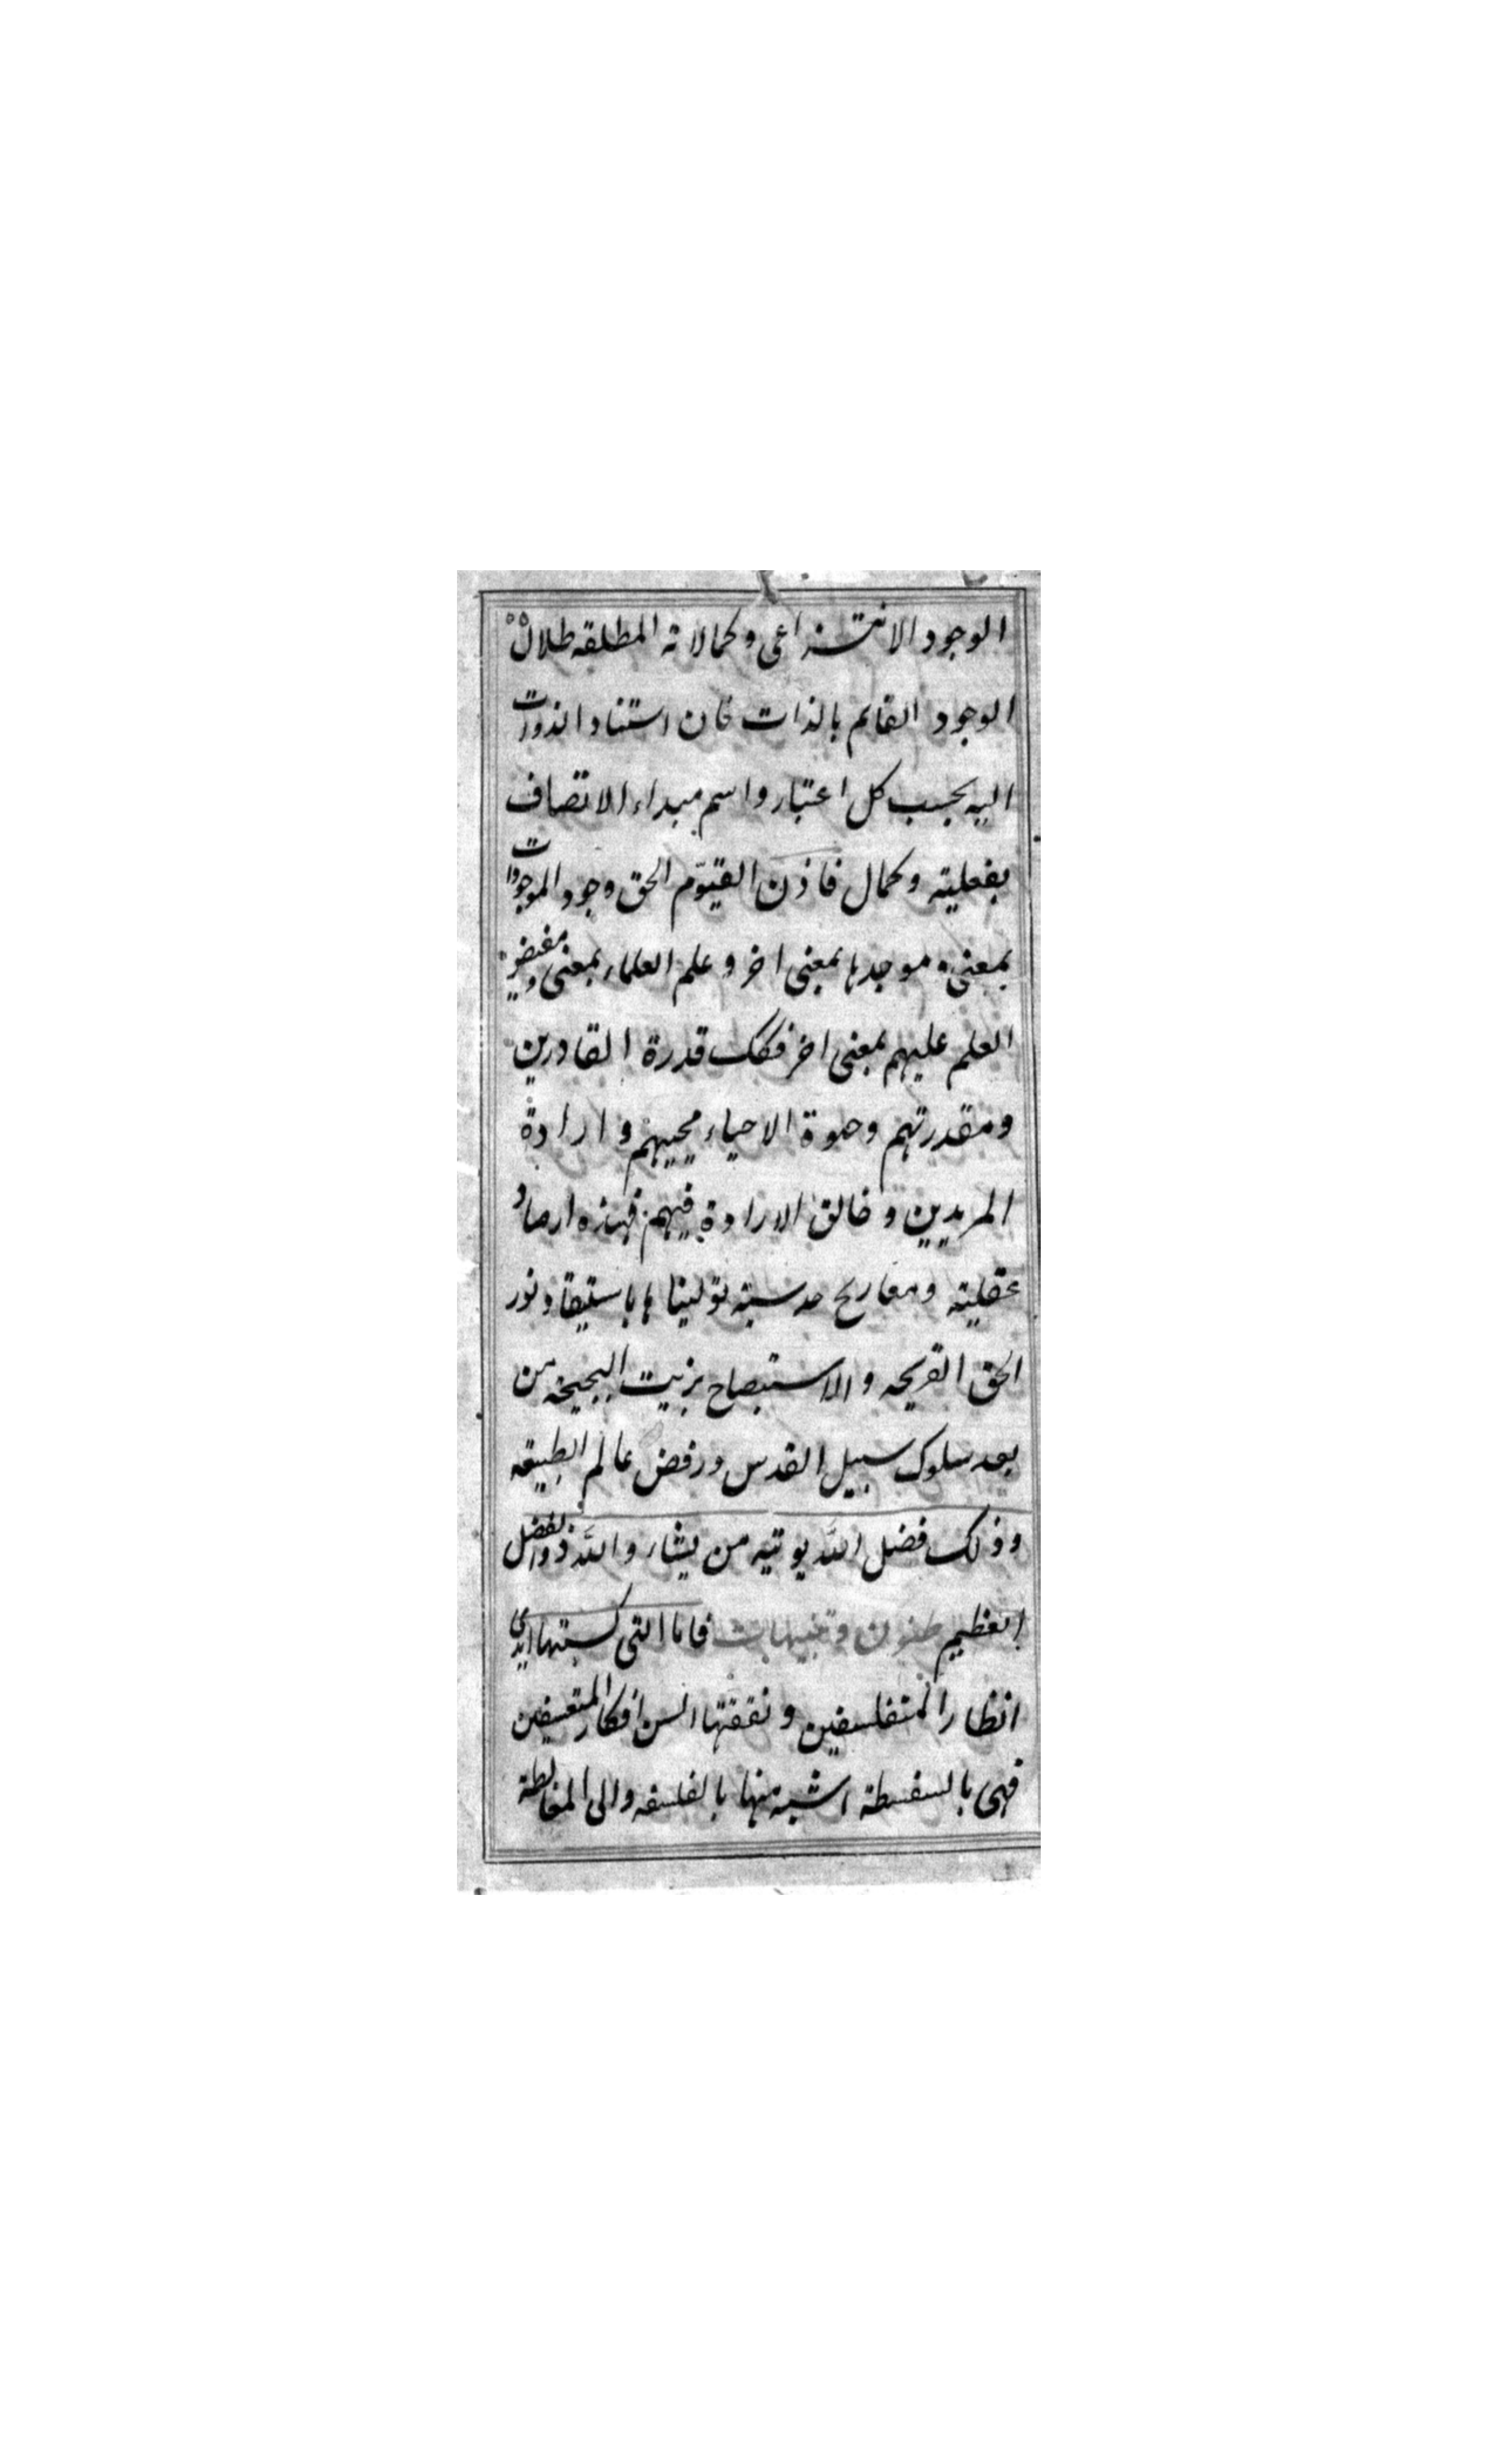 الوجود الانتزاعى وكمالاته المطلقه ظلال
الوجود القايم بالذات فان استناد الذوات
اليه بحسب كل اعتبار واسم مبداء الاتصاف
بفعليته وكمال فاذن القيّوم الحق وجود الموجودات
بمعنى وموجدها بمعنى اخر و علم العلماء بمعنى ومفيض
العلم عليهم بمعنى اخر فكك قدرة القادرين
ومقدرتهم وحيوة الاحياء ومحييهم و ارادة
المريدين و خالق الارادة فيهم فهذه ارصاد
عقليته ومعاريج حدسيته تولينا ها باستيقاد نور
الحق القريحه و الاستصباح بزيت من
بعد سلوك سبيل القدس ورفض عالم الطبيعه
وذلك فضل الله يوتيه من يشاء والله ذو الفضل
العظيم ظنون و تنبيهات فاما التى كسبتها ايدى
انظار المتفلسفين و نفقتها السن افكار المتعسفين
فهى بالسفسطة اشبه منها بالفلسفه والى المغالطة